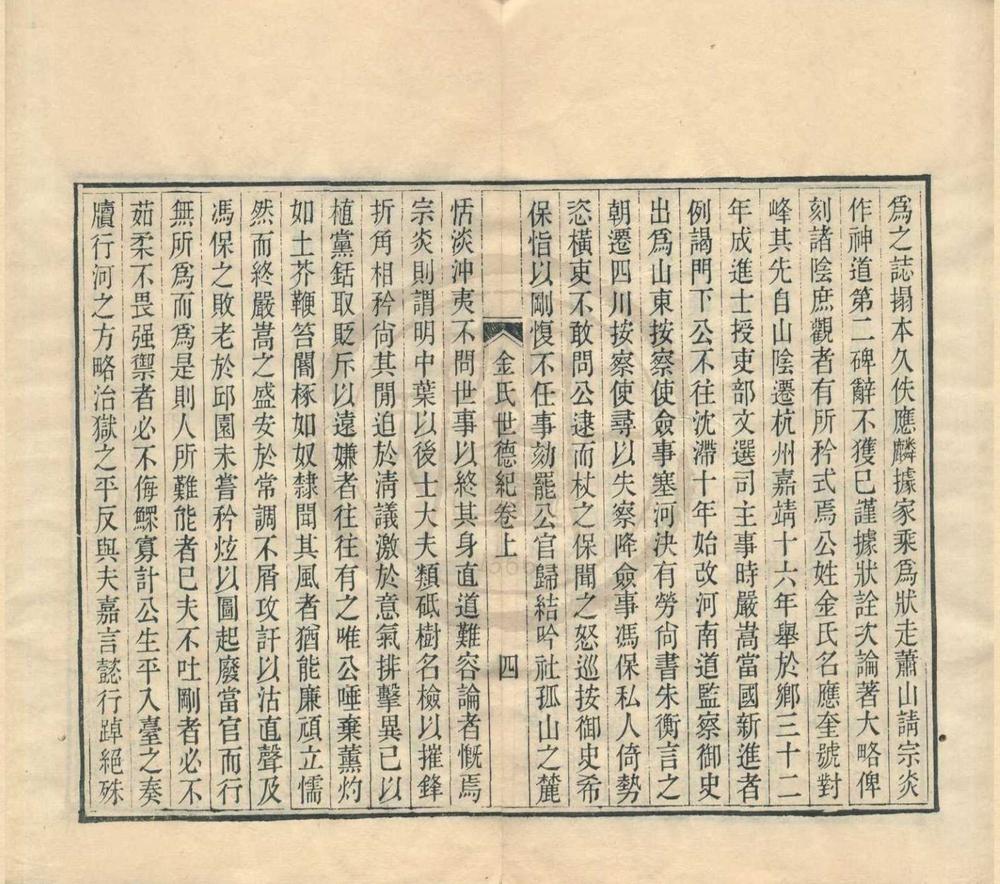 爲之誌搨本久佚應麟據家乘爲狀走蕭山請宗炎
作神道第二碑辭不獲已謹據狀詮次論著大略俾
刻諸陰庶觀者有所矜式焉公姓金氏名應奎號對
峰其先自山陰遷杭州嘉靖十六年舉於鄉三十二
年成進士授吏部文選司主事時嚴嵩當國新進者
例謁門下公不往沈滯十年始改河南道監察御史
出爲山東按察使僉事塞河決有勞尙書朱衡言之
朝遷四川按察使尋以失察降僉事馮保私人倚勢
恣橫吏不敢問公逮而杖之保聞之怒巡按御史希
保恉以剛愎不任事劾罷公官歸結吟社孤山之麓
金氏世德紀卷上 四
恬淡沖夷不問世事以終其身直道難容論者慨焉
宗炎則謂明中葉以後士大夫類砥樹名檢以摧鋒
折角相矜尙其閒迫於淸議激於意氣排擊異己以
植黨銛取貶斥以遠嫌者往往有之唯公唾棄薰灼
如土芥鞭笞閹椓如奴隸聞其風者猶能廉頑立懦
然而終嚴嵩之盛安於常調不屑攻訐以沽直聲及
馮保之敗老於邱園未嘗矜炫以圖起廢當官而行
無所爲而爲是則人所難能者已夫不吐剛者必不
茹柔不畏强禦者必不侮鰥寡計公生平入臺之奏
牘行河之方略治獄之平反與夫嘉言懿行踔絕殊